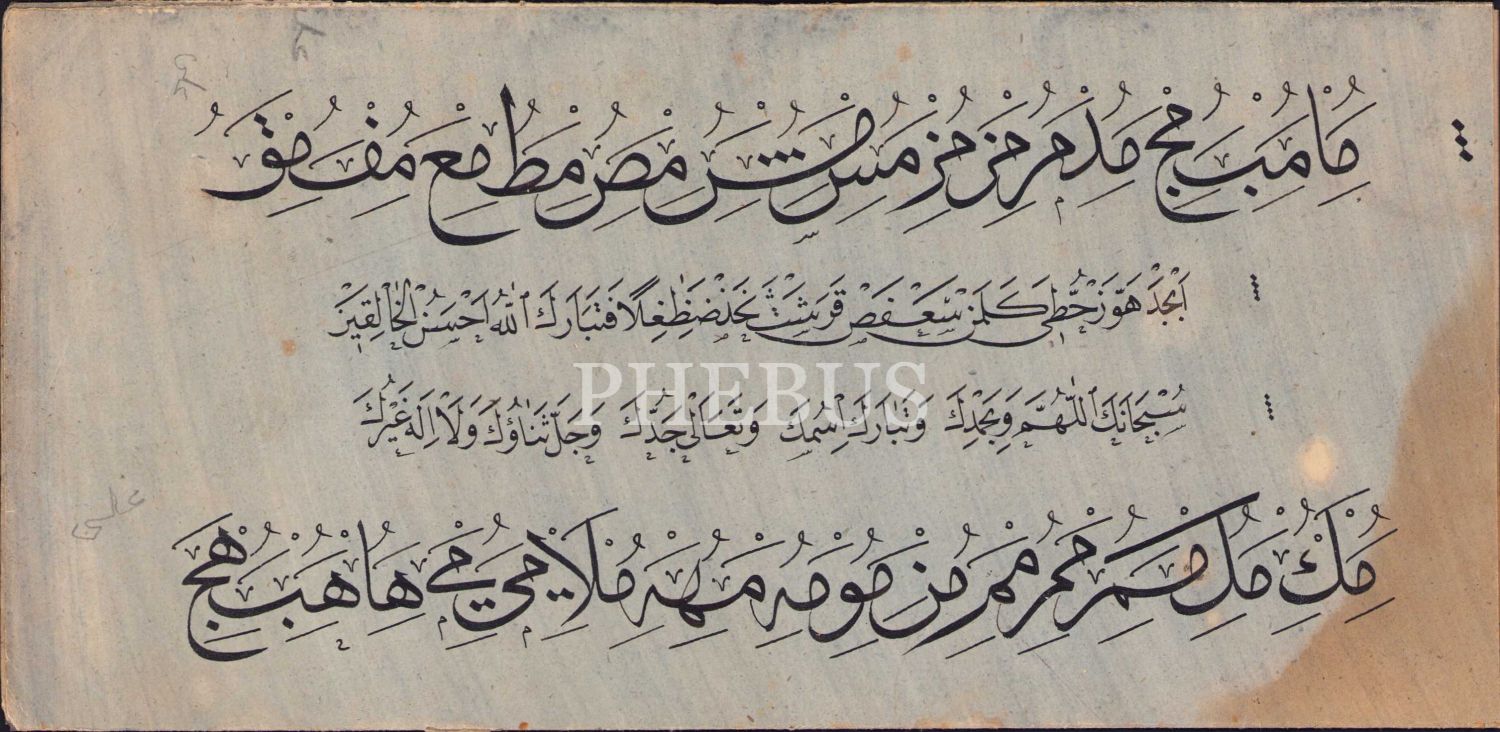 ما مب مج مد مر مز مس مش مص مط مع مف مق
ابجد هوز حطي كلمن سعفص قرشت ثخذ ضظغلا فتبارك الله احسن الخالقين
سبحانك اللهم وبحمدك وتبارك اسمك وتعالى جدك وجل ثناؤك ولا اله غيرك
PHEBUS
مك مل مم مم مم من مو مه مهه ملا مي مي ها هب هج
علي